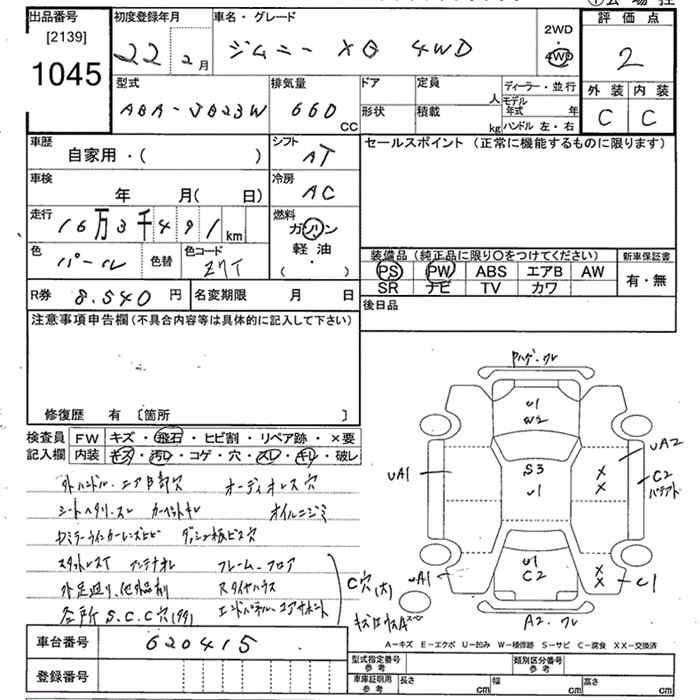 出品番号
[2139]
1045
初度登録年月
22年 2月
車名・グレード
ジムニー XG 4WD
2WD
・
4WD
評価点
2
外装 内装
C C
型式
ABA-JB23W
排気量
660
CC
ドア
形状
定員
人
積載
kg
ディーラー・並行
モデル年式 年
ハンドル 左・右
車歴
自家用・( )
シフト
AT
セールスポイント (正常に機能するものに限ります)
車検
年 月( 日)
冷房
AC
走行
16万3千491km
燃料
ガソリン
軽油
・
( )
色
パール
色替
色コード
装備品 (純正品に限り○をつけてください)
PS PW ABS エアB AW
SR ナビ TV カワ
新車保証書
有・無
R券 8,540 円
名変期限 月 日
後日品
注意事項申告欄 (不具合内容等は具体的に記入して下さい)
修復歴 有 [箇所 ]
検査員記入欄
FW キズ・飛石・ヒビ割・リペア跡・×要
内装 キズ・汚レ・コゲ・穴・スレ・キレ・破レ
外ハンドル・エアB部穴 オーディオレス穴
シートヘタリ・スレ カーペットキレ オイルニジミ
ウインカーレンズヒビ ダッシュ板ビス穴
スタットレスT アンテナオレ フレーム・フロア
外足廻り、他外品割 Rタイヤハウス
各所 S.C.C穴 エンドパネル・コアサポート
C穴(大)
U1
W2
S3
U1
U1
C2
UA1
UA2
C2
パテアト
X
X
X
X
UA1
C1
A2.ワレ
A－キズ E－エクボ U－凹み W－補修跡 S－サビ C－腐食 XX－交換済
車台番号
620415
登録番号
型式指定番号
参考
類別区分番号
参考
車庫証明用
参考
長さ cm
幅 cm
高さ cm